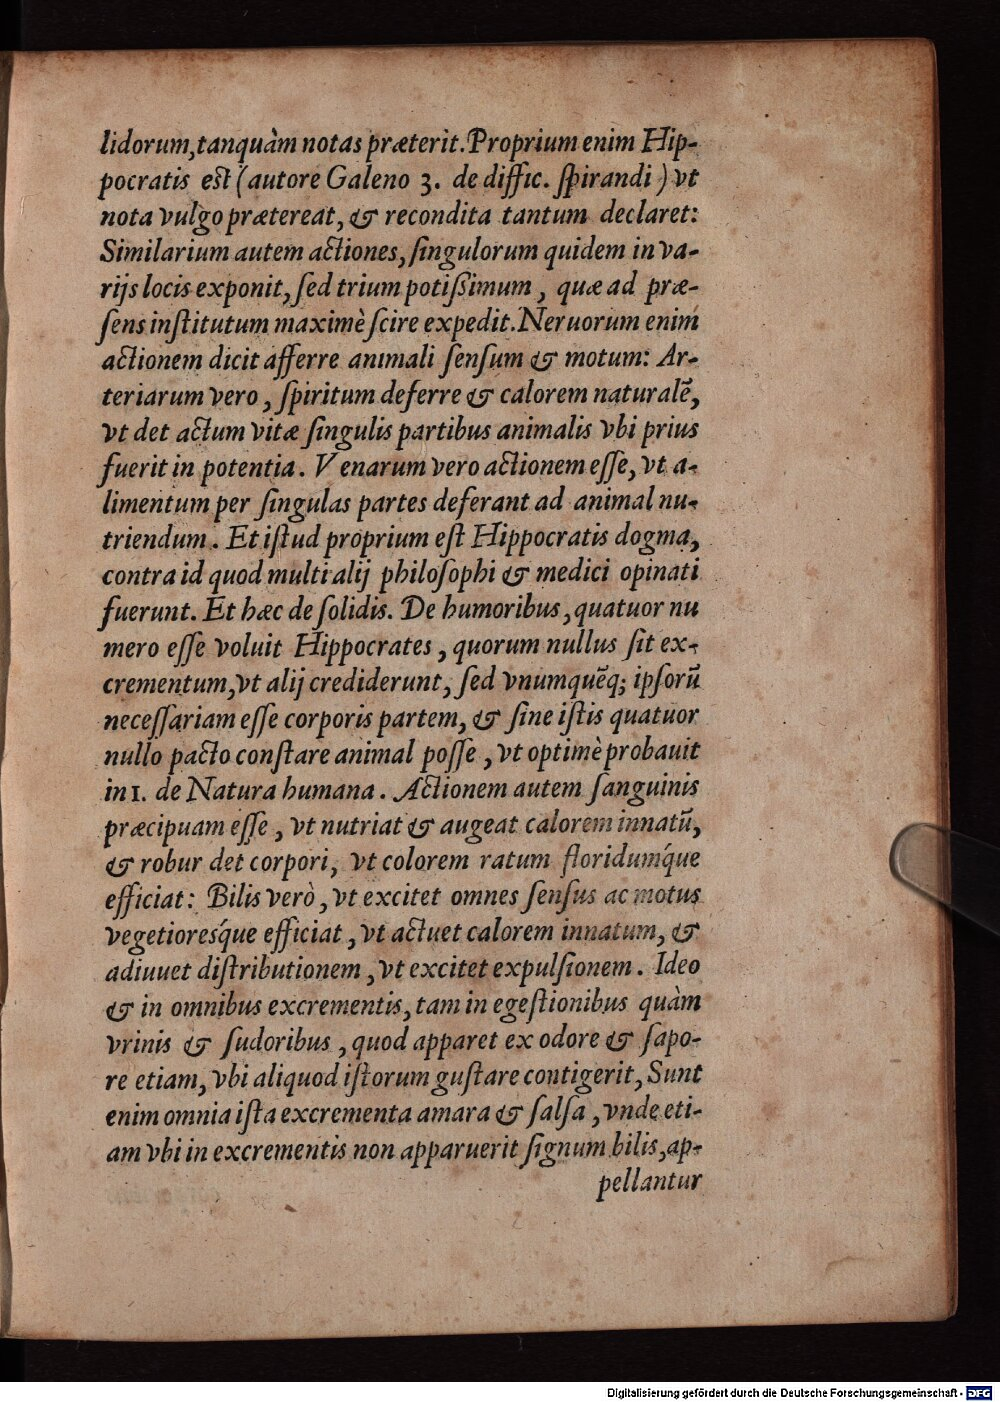 lidorum,tanquàm notas præterit.Proprium enim Hip-
pocratis est (autore Galeno 3. de diffic. ſpirandi) vt
nota vulgo prætereat, & recondita tantum declaret:
Similarium autem actiones, ſingulorum quidem in va-
rijs locis exponit, ſed trium potiſsimum, quæ ad præ-
ſens inſtitutum maximè ſcire expedit. Neruorum enim
actionem dicit afferre animali ſenſum & motum: Ar-
teriarum vero, ſpiritum deferre & calorem naturalē,
vt det actum vitæ ſingulis partibus animalis vbi prius
fuerit in potentia. Venarum vero actionem eſſe, vt a-
limentum per ſingulas partes deferant ad animal nu-
triendum. Et iſtud proprium eſt Hippocratis dogma,
contra id quod multi alij philoſophi & medici opinati
fuerunt. Et hæc de ſolidis. De humoribus, quatuor nu
mero eſſe voluit Hippocrates, quorum nullus ſit ex-
crementum,vt alij crediderunt, ſed vnumquēq; ipſorū
neceſſariam eſſe corporis partem, & ſine iſtis quatuor
nullo pacto conſtare animal poſſe, vt optimè probauit
in 1. de Natura humana. Actionem autem ſanguinis
præcipuam eſſe, vt nutriat & augeat calorem innatū,
& robur det corpori, vt colorem ratum floridumq́ue
efficiat: Bilis verò, vt excitet omnes ſenſus ac motus
vegetioresq́ue efficiat, vt actuet calorem innatum, &
adiuuet diſtributionem, vt excitet expulſionem. Ideo
& in omnibus excrementis, tam in egeſtionibus quàm
vrinis & ſudoribus, quod apparet ex odore & ſapo-
re etiam, vbi aliquod iſtorum guſtare contigerit, Sunt
enim omnia iſta excrementa amara & ſalſa, vnde eti-
am vbi in excrementis non apparuerit ſignum bilis,ap-
pellantur
Digitalisierung gefördert durch die Deutsche Forschungsgemeinschaft - DFG